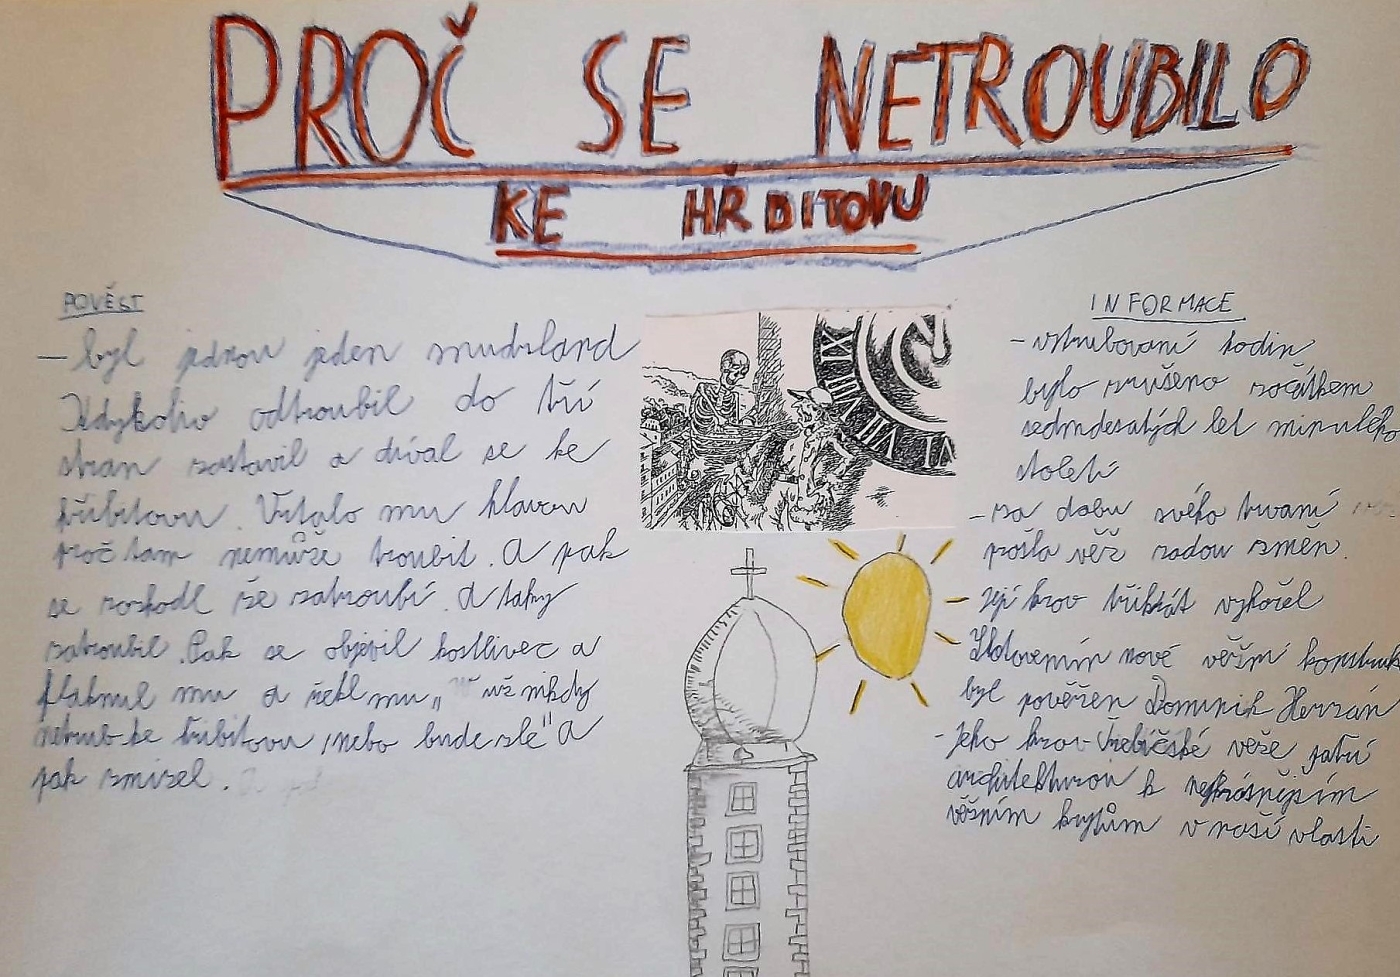 PROČ SE NETROUBILO
KE HŘBITOVU
POVĚST
- byl jednou jeden
odtroubil do tří
stran zastavil a díval se ke
hřbitovu. Vrtalo mu hlavou
proč tam nemůže troubit. A pak
se že zatroubí. A taky
zatroubil. Pak se objevil kostlivec a
mu a řekl mu „ už nikdy
netrub ke hřbitovu, nebo bude zle" A
pak zmizel.
INFORMACE
- vytrubování hodin
bylo zrušeno začátkem
sedmdesatých let minulého
století
- za dobu svého trvaní
prošla věž řadou změn.
- její krov třikrát vyhořel
nové věžím
byl pověřen Dominik Herzán
- jeho krov třebíčské věže patří
architekturou k
věžním krytům v naší vlasti
XI
VIII
VII
VI